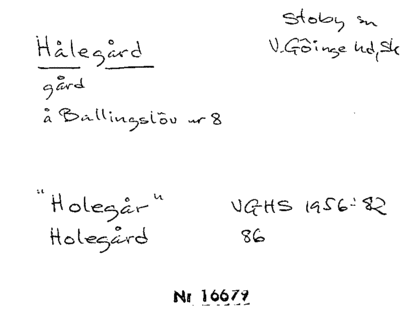 Hålegård
Stoby sn
V. Göinge hd, Sk
gård
å Ballingslöv nr 8
"Holegår" VGHS 1956: 82
Holegård 86
Nr 16679